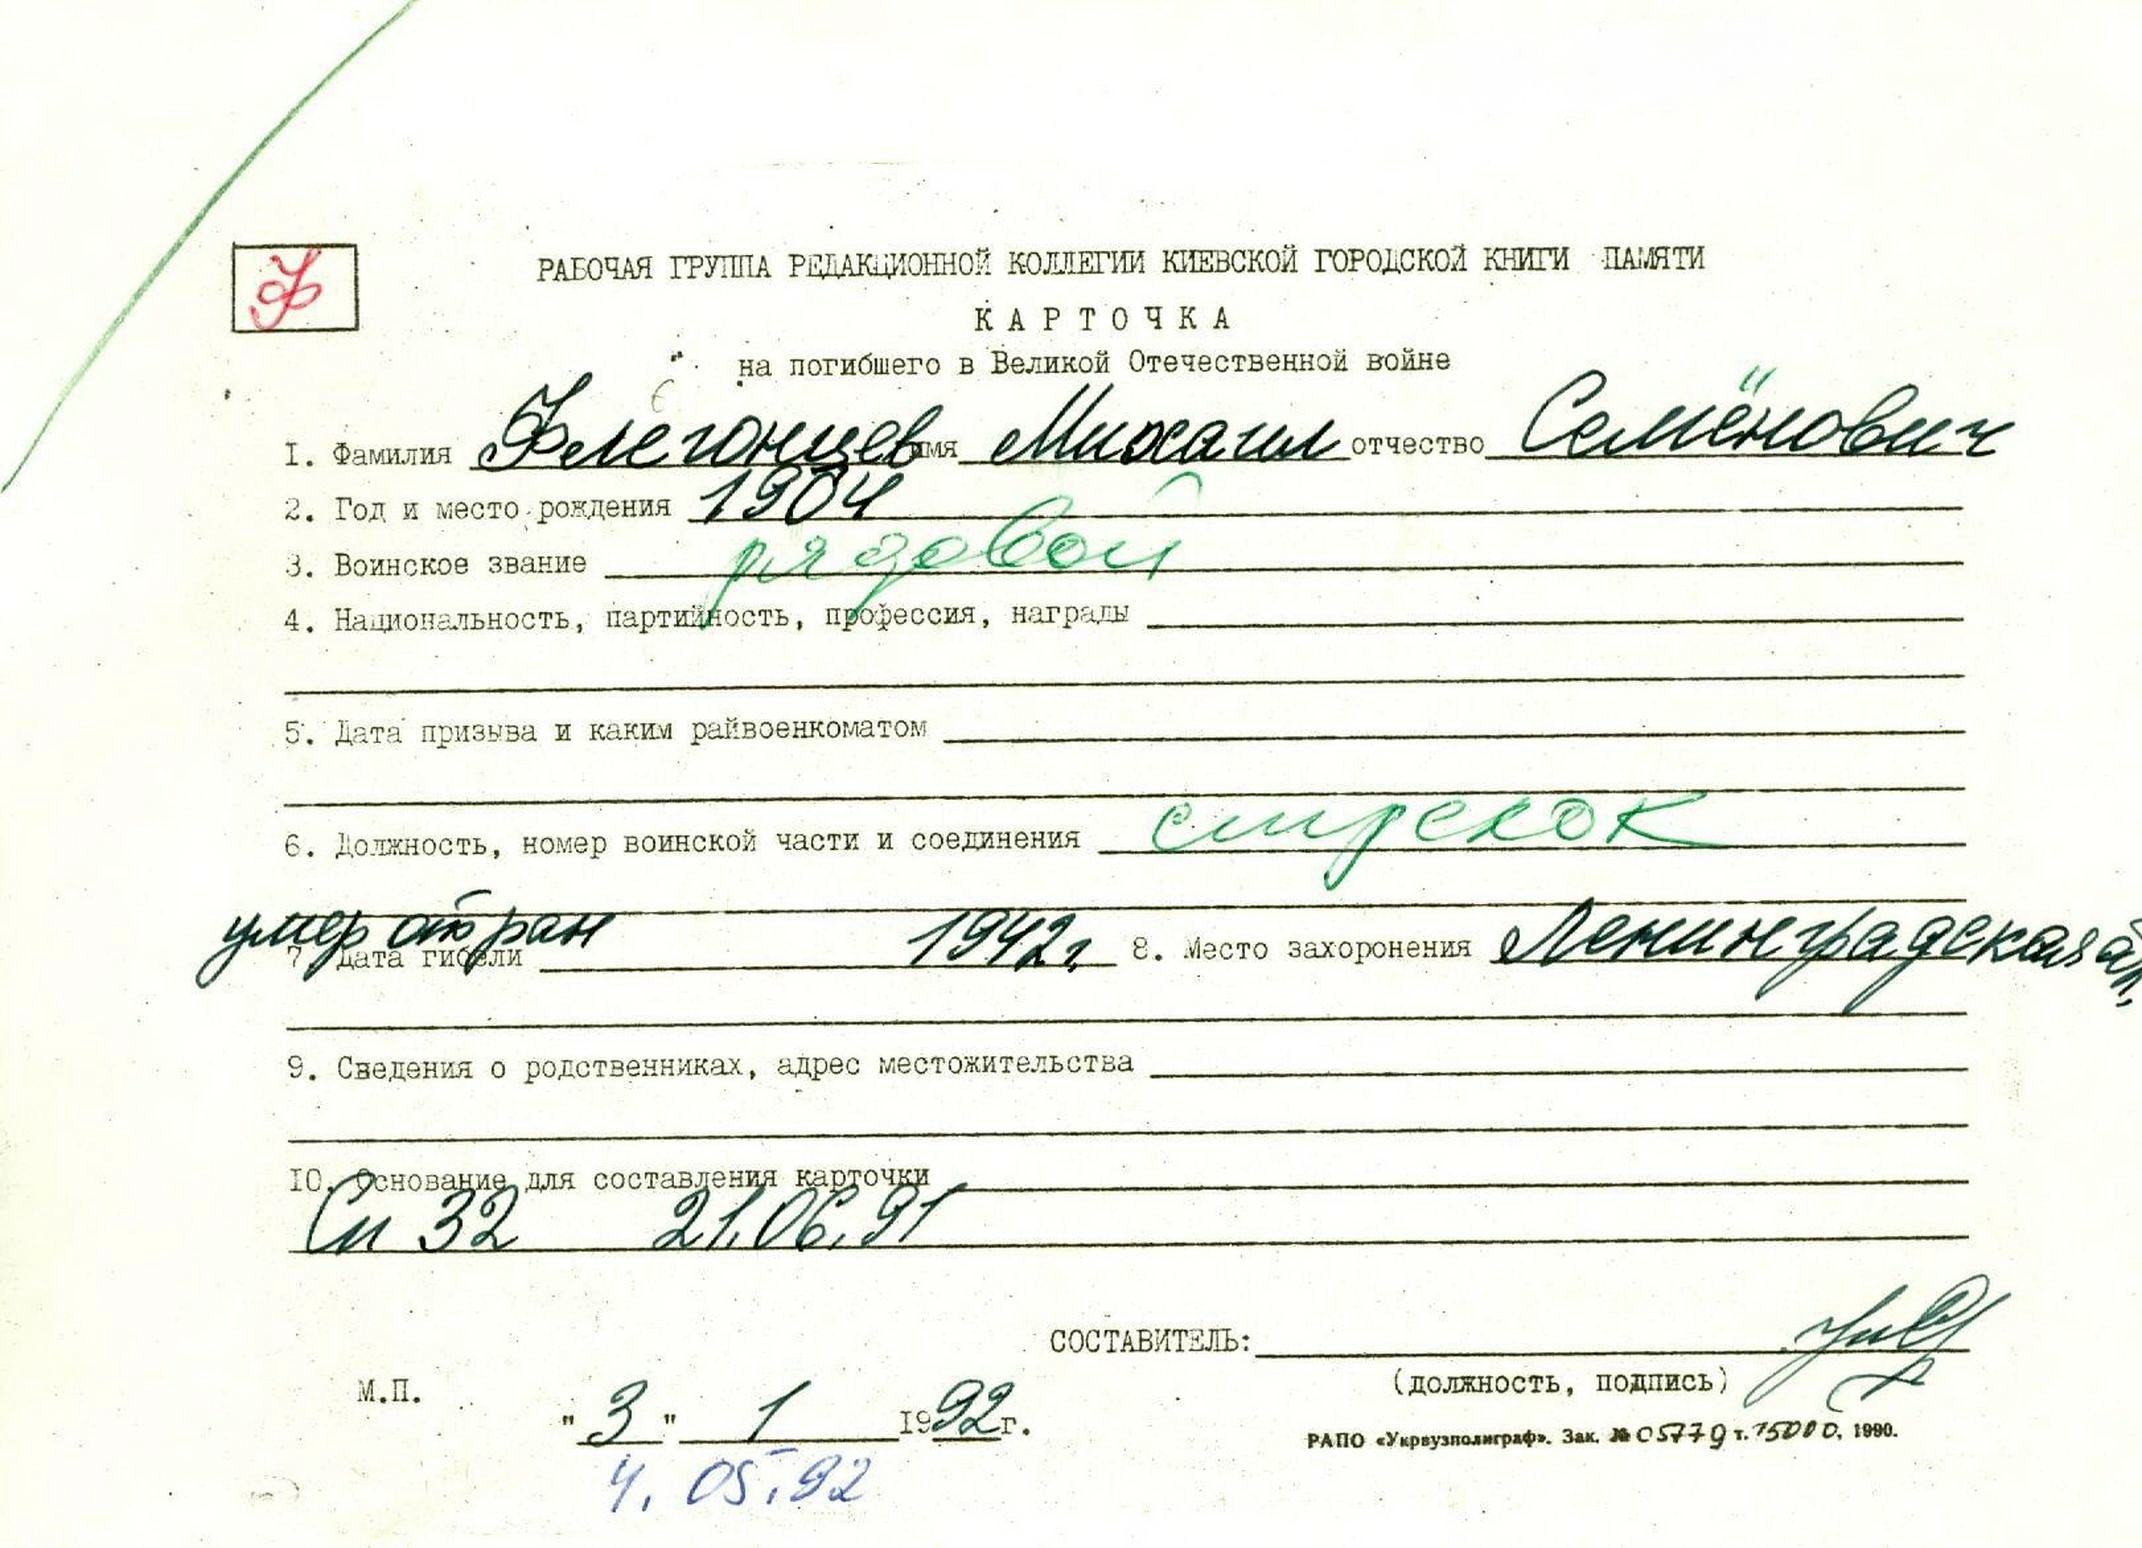 Ф
РАБОЧАЯ ГРУППА РЕДАКЦИОННОЙ КОЛЛЕГИИ КИЕВСКОЙ ГОРОДСКОЙ КНИГИ ПАМЯТИ
КАРТОЧКА
на погибшего в Великой Отечественной войне
1. Фамилия Флегонцев имя Михаил отчество Семёнович
2. Год и место рождения 1904
3. Воинское звание рядовой
4. Национальность, партийность, профессия, награды
5. Дата призыва и каким райвоенкоматом
6. Должность, номер воинской части и соединения стрелок
умер от ран
7. Дата гибели 1942г. 8. Место захоронения Ленинградская
9. Сведения о родственниках, адрес местожительства
10. Основание для составления карточки
Сп 32 21.06.91
СОСТАВИТЕЛЬ:
(должность, подпись)
М.П.
"3" 1 1992г.
РАПО «Укрвузполиграф». Зак. № 05779 т. 15000, 1990.
4. 05.92